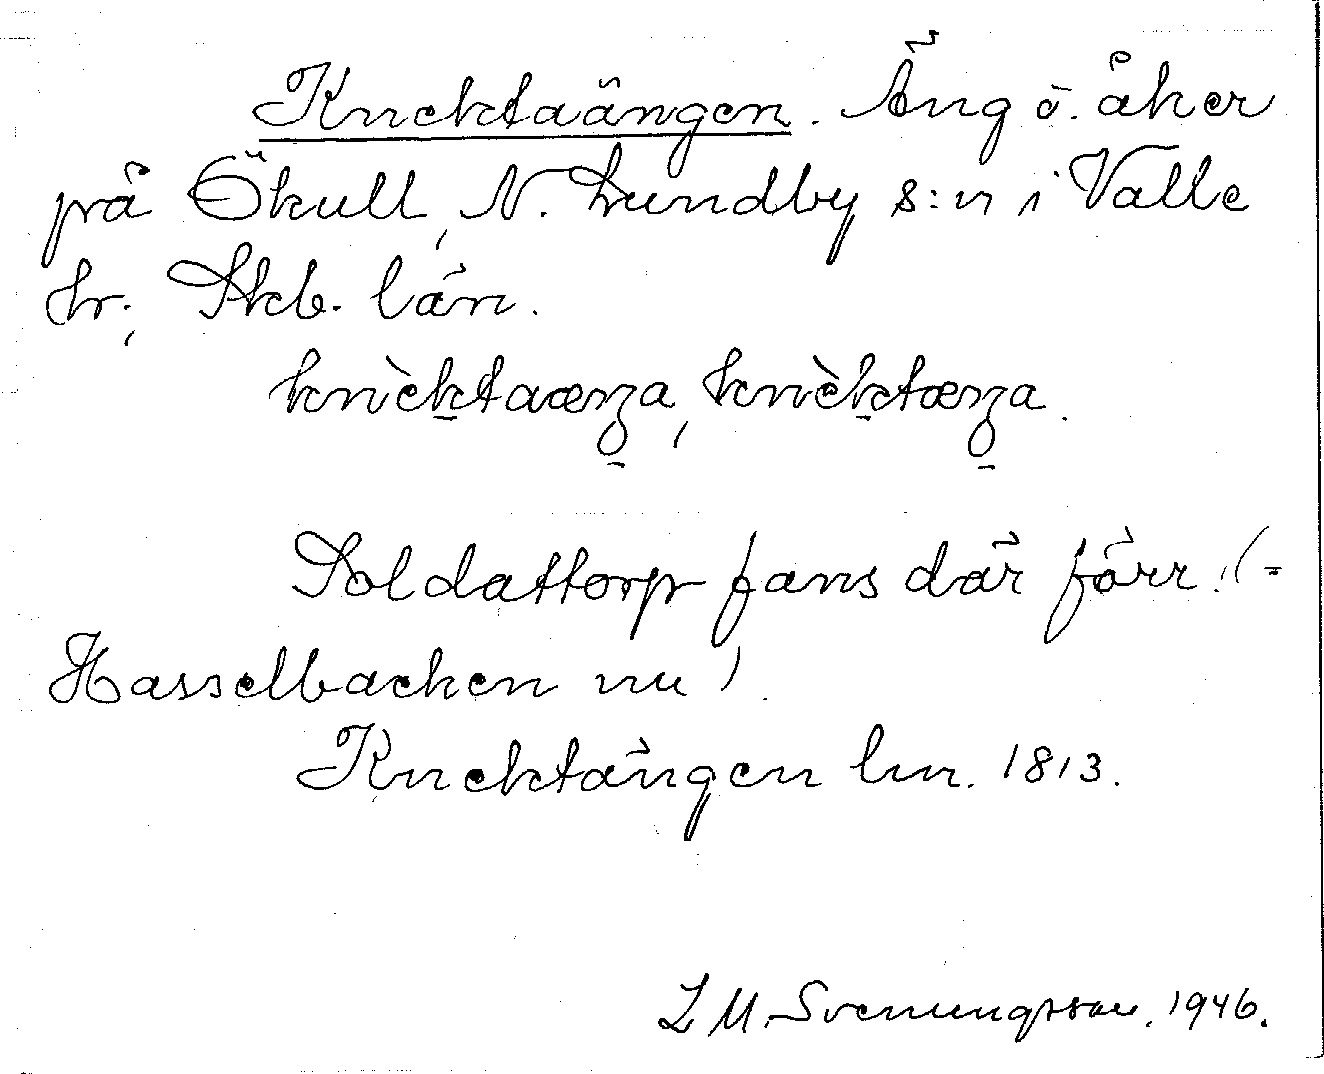 Knektaängen. Äng o. åker
på Ökull, N. Lundby s:n i Valle
hr., Skb. län.
knèktaæŋa, knèktæŋa.
Soldattorp fans där förr. (=
Hasselbacken nu).
Knektängen lm. 1813.
L M. Svenungsson. 1946.